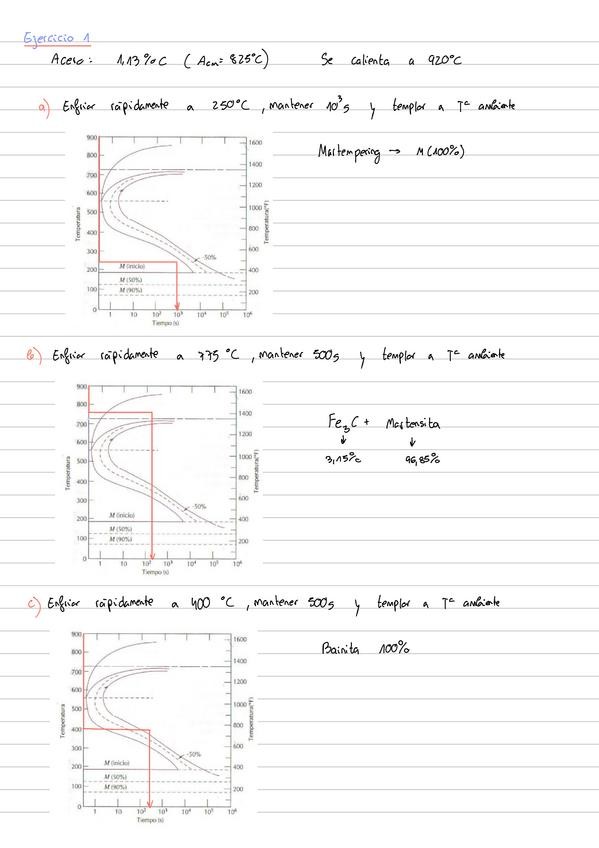 Ejercicio 1
Acero: 1,13%C (Acm = 825°C) Se calienta a 920°C
a) Enfriar rápidamente a 250°C, mantener 10³s y templar a Tª ambiente
Martempering → M (100%)
900
800
700
600
500
400
300
200
100
0
Temperatura
1600
1400
1200
1000
800
600
400
200
Temperatura(°F)
-50%
M (inicio)
M (50%)
M (90%)
1 10 10² 10³ 10⁴ 10⁵ 10⁶
Tiempo (s)
b) Enfriar rápidamente a 775 °C, mantener 500s y templar a Tª ambiente
Fe₃C + Martensita
3,15% 96,85%
900
800
700
600
500
400
300
200
100
0
Temperatura
1600
1400
1200
1000
800
600
400
200
Temperatura(°F)
-50%
M (inicio)
M (50%)
M (90%)
1 10 10² 10³ 10⁴ 10⁵ 10⁶
Tiempo (s)
c) Enfriar rápidamente a 400 °C, mantener 500s y templar a Tª ambiente
Bainita 100%
900
800
700
600
500
400
300
200
100
0
Temperatura
1600
1400
1200
1000
800
600
400
200
Temperatura(°F)
-50%
M (inicio)
M (50%)
M (90%)
1 10 10² 10³ 10⁴ 10⁵ 10⁶
Tiempo (s)